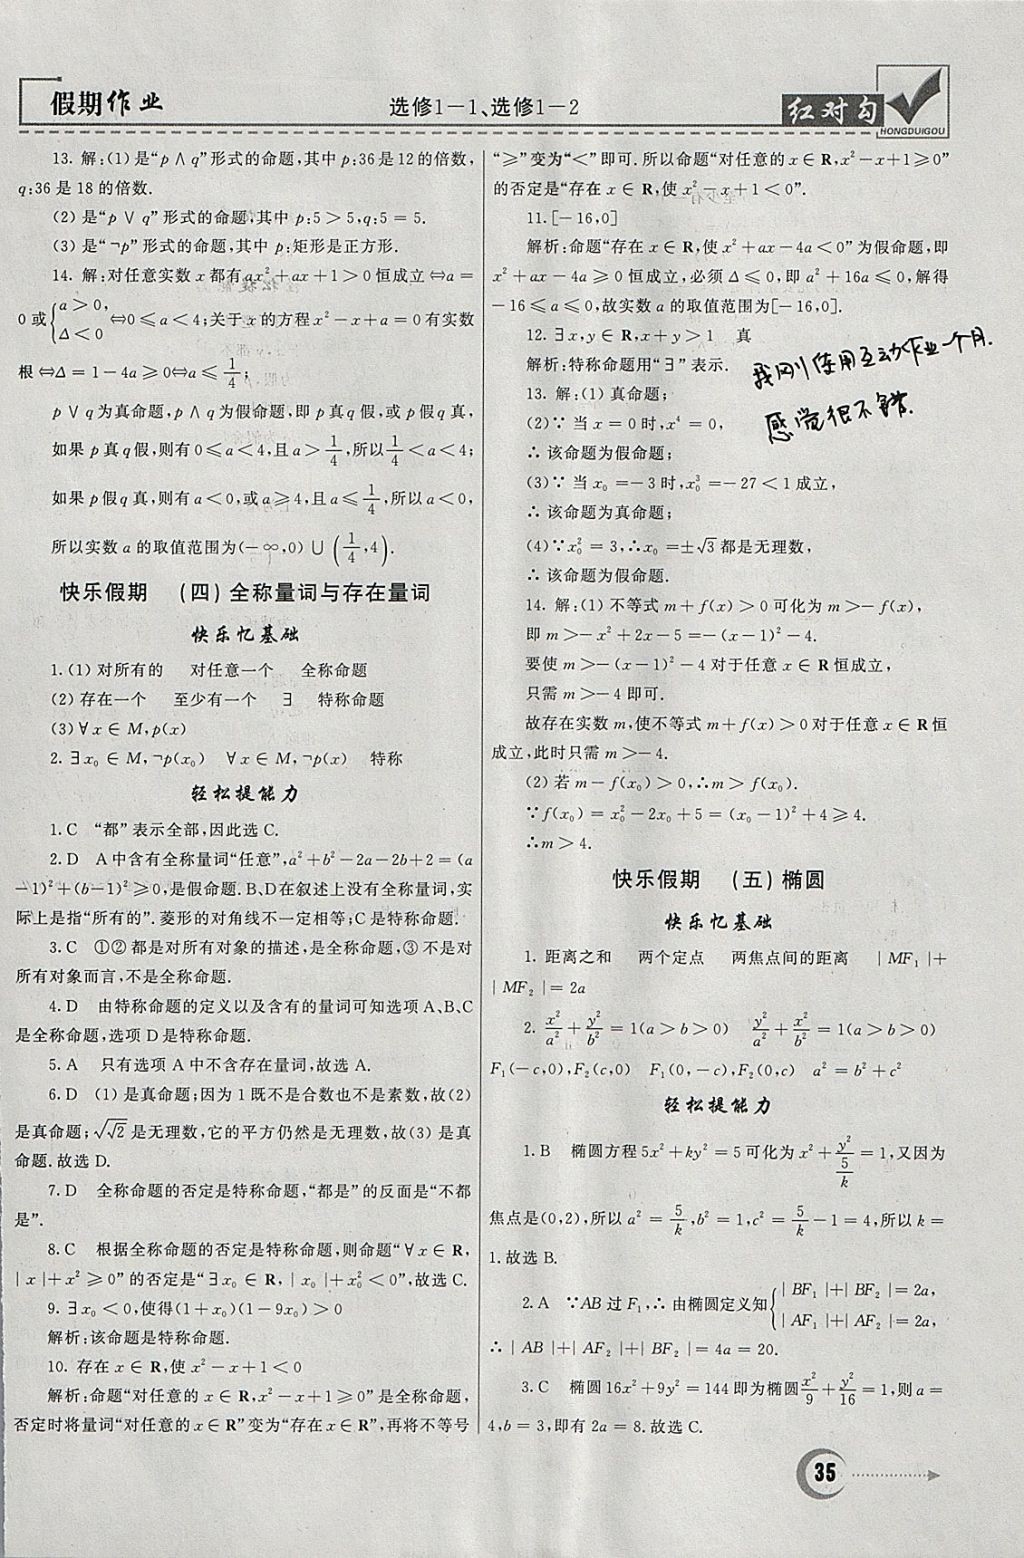 假期作业
选修1-1、选修1-2
红对勾
HONGDUIGOU
13. 解:(1)是“p∧q”形式的命题,其中p:36是12的倍数,
q:36是18的倍数.
(2)是“p∨q”形式的命题,其中p:5>5,q:5=5.
(3)是“¬p”形式的命题,其中p:矩形是正方形.
14. 解:对任意实数x都有ax²+ax+1>0恒成立⇔a=
0或{a>0, Δ<0 ⇔0≤a<4;关于x的方程x²-x+a=0有实数
根⇔Δ=1-4a≥0⇔a≤1/4;
p∨q为真命题,p∧q为假命题,即p真q假,或p假q真,
如果p真q假,则有0≤a<4,且a>1/4,所以1/4<a<4;
如果p假q真,则有a<0,或a≥4,且a≤1/4,所以a<0,
所以实数a的取值范围为(-∞,0)∪(1/4,4).
快乐假期 (四)全称量词与存在量词
快乐忆基础
1.(1)对所有的 对任意一个 全称命题
(2)存在一个 至少有一个 ∃ 特称命题
(3)∀x∈M,p(x)
2.∃x₀∈M,¬p(x₀) ∀x∈M,¬p(x) 特称
轻松提能力
1.C “都”表示全部,因此选C.
2.D A中含有全称量词“任意”,a²+b²-2a-2b+2=(a
-1)²+(b-1)²≥0,是假命题.B、D在叙述上没有全称量词,实
际上是指“所有的”.菱形的对角线不一定相等;C是特称命题.
3.C ①②都是对所有对象的描述,是全称命题,③不是对
所有对象而言,不是全称命题.
4.D 由特称命题的定义以及含有的量词可知选项A、B、C
是全称命题,选项D是特称命题.
5.A 只有选项A中不含存在量词,故选A.
6.D (1)是真命题;因为1既不是合数也不是素数,故(2)
是真命题;√√2是无理数,它的平方仍然是无理数,故(3)是真
命题.故选D.
7.D 全称命题的否定是特称命题,“都是”的反面是“不都
是”.
8.C 根据全称命题的否定是特称命题,则命题“∀x∈R,
|x|+x²≥0”的否定是“∃x₀∈R,|x₀|+x₀²<0”,故选C.
9.∃x₀<0,使得(1+x₀)(1-9x₀)>0
解析:该命题是特称命题.
10. 存在x∈R,使x²-x+1<0
解析:命题“对任意的x∈R,x²-x+1≥0”是全称命题,
否定时将量词“对任意的x∈R”变为“存在x∈R”,再将不等号
“≥”变为“<”即可.所以命题“对任意的x∈R,x²-x+1≥0”
的否定是“存在x∈R,使x²-x+1<0”.
11.[-16,0]
解析:命题“存在x∈R,使x²+ax-4a<0”为假命题,即
x²+ax-4a≥0恒成立,必须Δ≤0,即a²+16a≤0,解得
-16≤a≤0,故实数a的取值范围为[-16,0].
12.∃x,y∈R,x+y>1 真
解析:特称命题用“∃”表示.
我刚使用互动作业一个月.
感觉很不错.
13. 解:(1)真命题;
(2)∵当x=0时,x⁴=0,
∴该命题为假命题;
(3)∵当x₀=-3时,x₀³=-27<1成立,
∴该命题为真命题;
(4)∵x₀²=3,∴x₀=±√3都是无理数,
∴该命题为假命题.
14. 解:(1)不等式m+f(x)>0可化为m>-f(x),
即m>-x²+2x-5=-(x-1)²-4.
要使m>-(x-1)²-4对于任意x∈R恒成立,
只需m>-4即可.
故存在实数m,使不等式m+f(x)>0对于任意x∈R恒
成立,此时只需m>-4.
(2)若m-f(x₀)>0,∴m>f(x₀).
∵f(x₀)=x₀²-2x₀+5=(x₀-1)²+4≥4.
∴m>4.
快乐假期 (五)椭圆
快乐忆基础
1. 距离之和 两个定点 两焦点间的距离 |MF₁|+
|MF₂|=2a
2. x²/a²+y²/b²=1(a>b>0) y²/a²+x²/b²=1(a>b>0)
F₁(-c,0),F₂(c,0) F₁(0,-c),F₂(0,c) a²=b²+c²
轻松提能力
1.B 椭圆方程5x²+ky²=5可化为x²+y²/(5/k)=1,又因为
焦点是(0,2),所以a²=5/k,b²=1,c²=5/k-1=4,所以k=
1.故选B.
2.A ∵AB过F₁,∴由椭圆定义知{|BF₁|+|BF₂|=2a, |AF₁|+|AF₂|=2a,
∴|AB|+|AF₂|+|BF₂|=4a=20.
3.C 椭圆16x²+9y²=144即为椭圆x²/9+y²/16=1,则a=
4,b=3,即有2a=8.故选C.
35